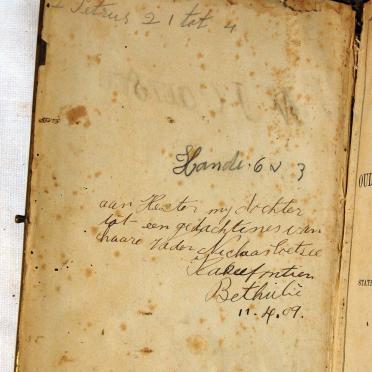 2 Petrus 2 1 tot 4
Handl. 6 v 3
aan Hester my dochter
tot een gedachtenes van
haare Vader Niclaas Coetsee
Bethulie
11.4.09.
OUD
STATE